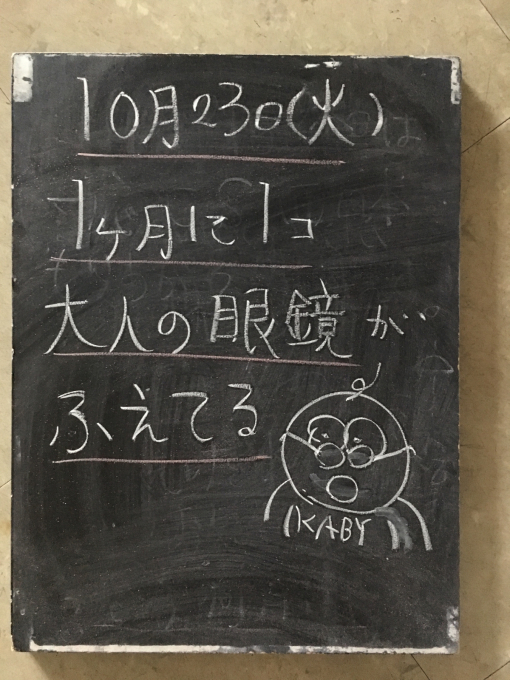 10月23日(火)
1ヶ月に1コ
大人の眼鏡が
ふえてる
KABY